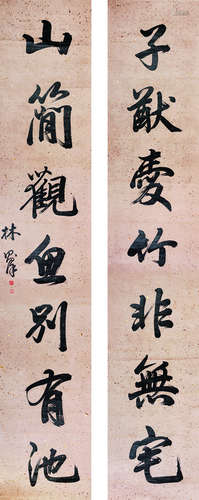 子猷愛竹非無宅
山簡觀魚別有池
林翬